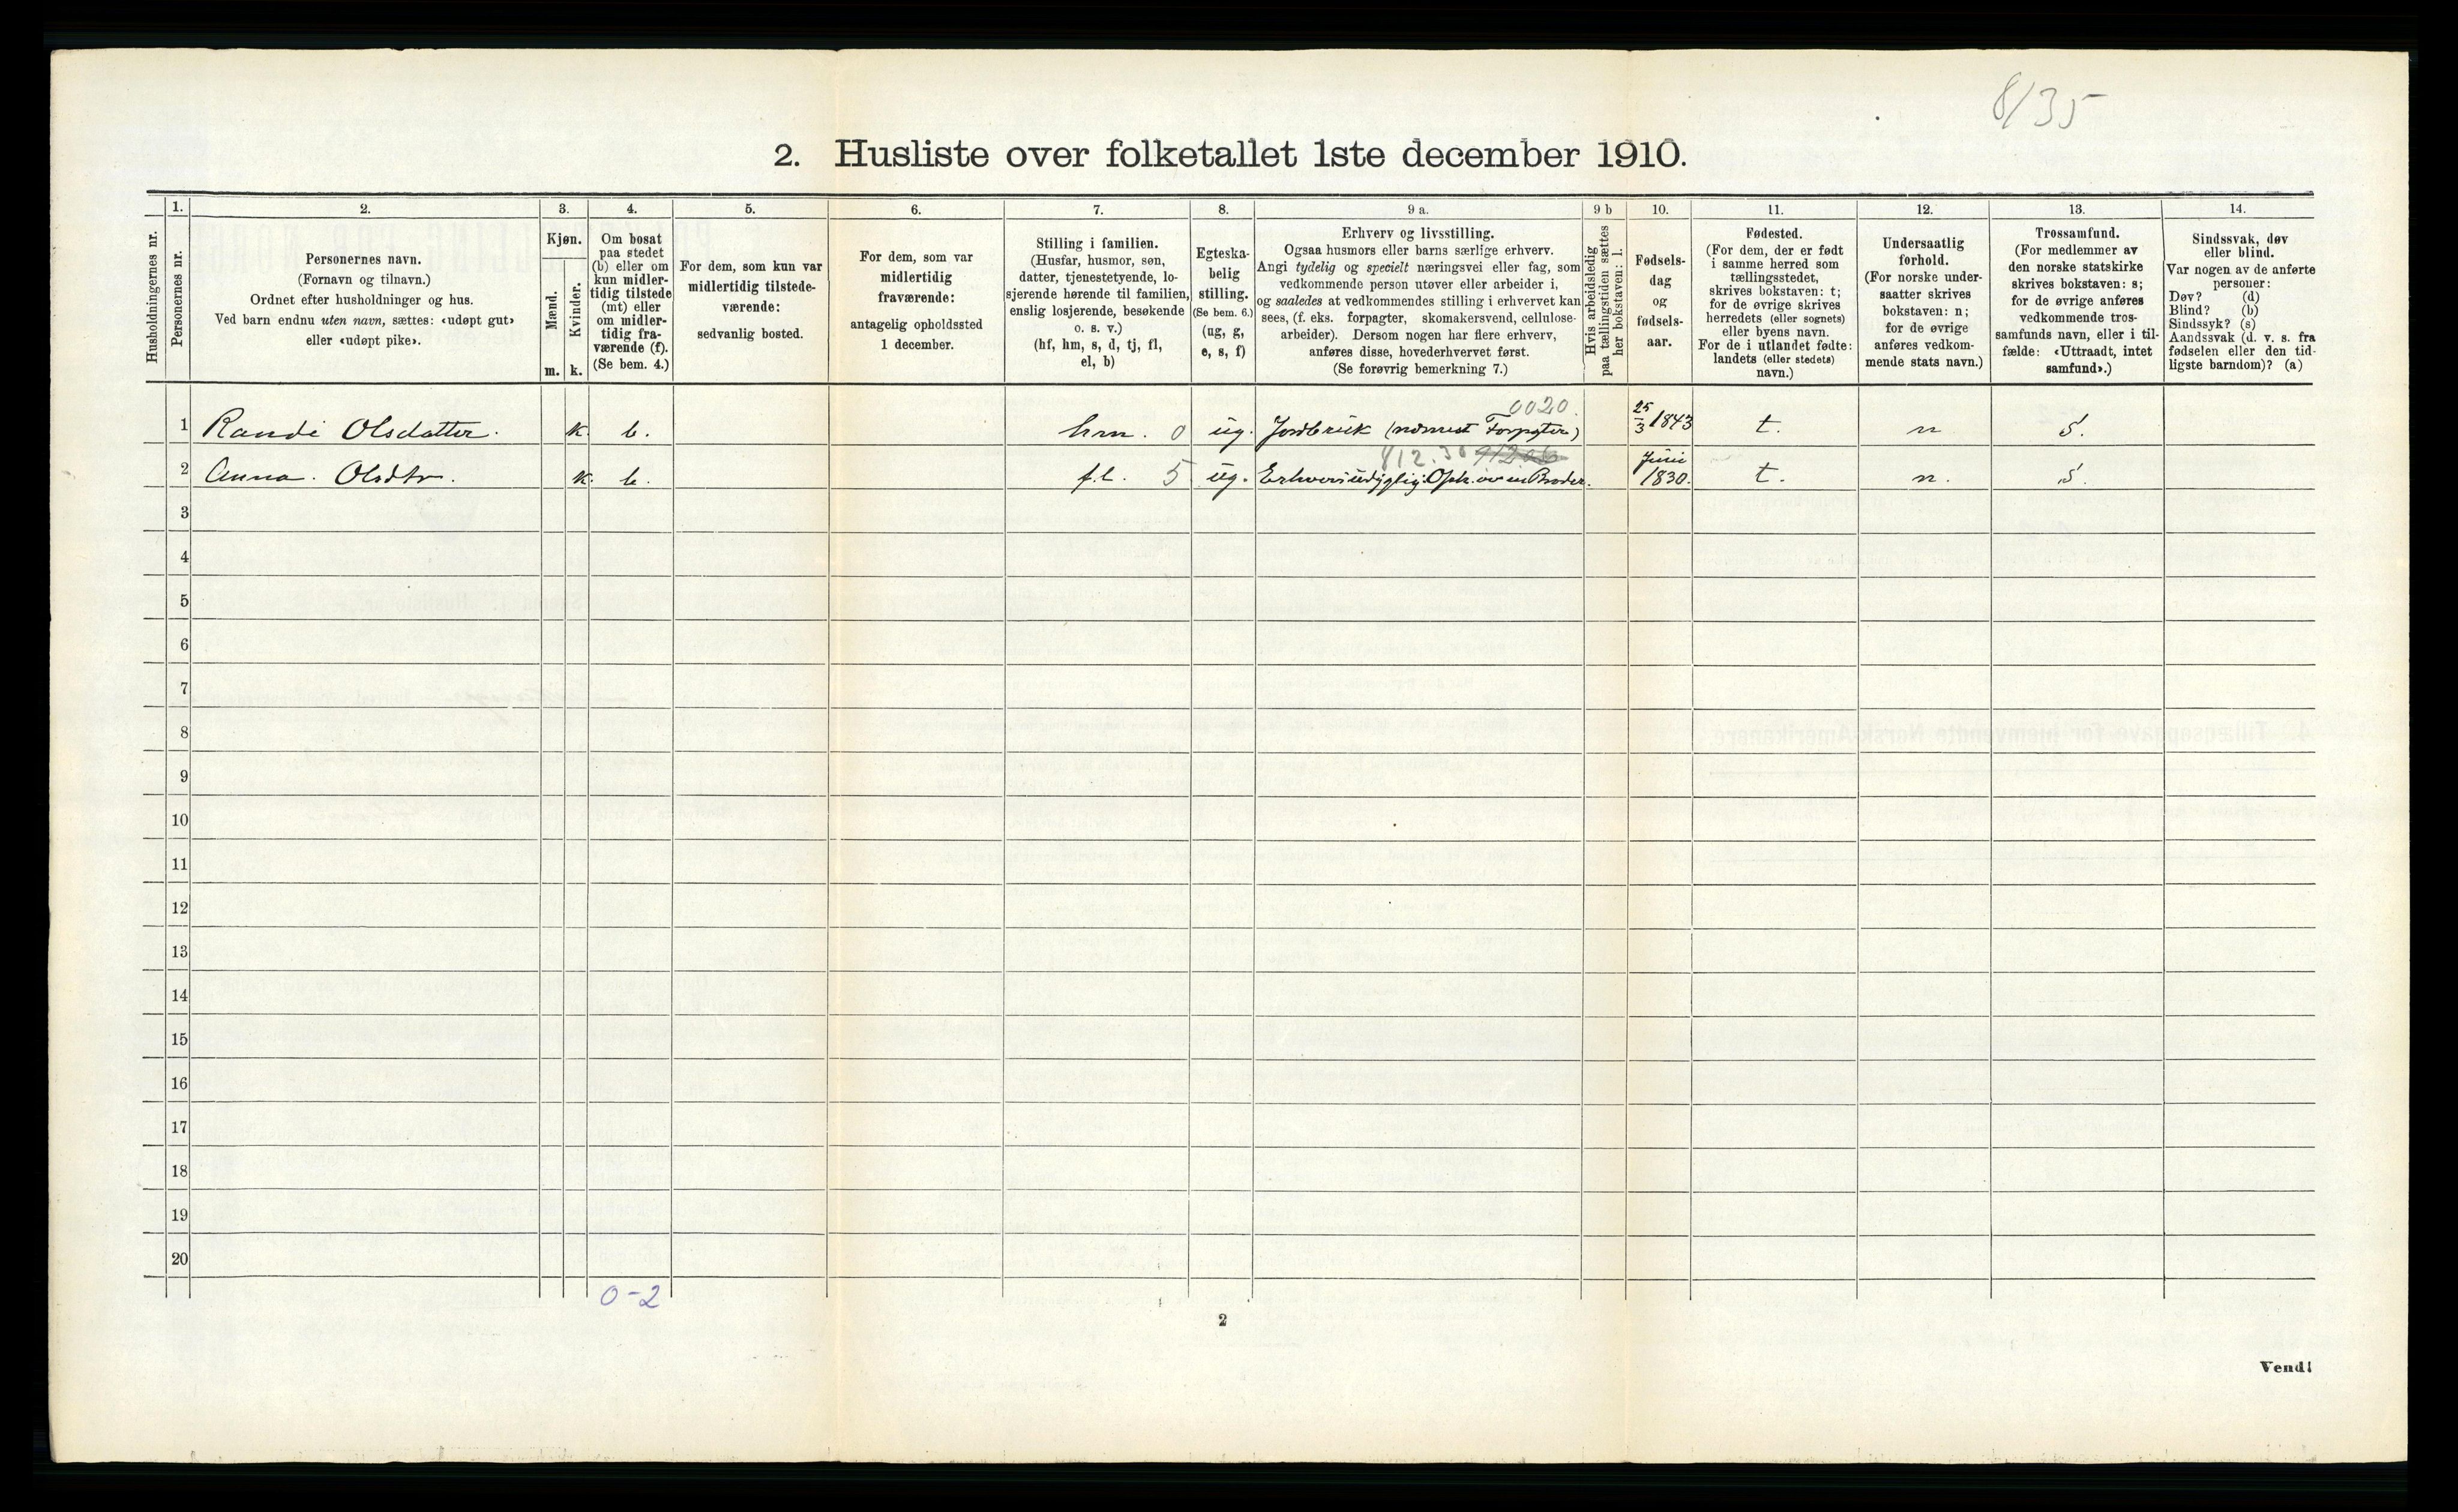 8/35
2. Husliste over folketallet 1ste december 1910.
Husholdningernes nr.
1.
Personernes nr.
2.
Personernes navn.
(Fornavn og tilnavn.)
Ordnet efter husholdninger og hus.
Ved barn endnu uten navn, sættes: «udøpt gut»
eller «udøpt pike».
3.
Kjøn.
Mænd.
Kvinder.
m. k.
4.
Om bosat
paa stedet
(b) eller om
kun midler-
tidig tilstede
(mt) eller
om midler-
tidig fra-
værende (f).
(Se bem. 4.)
5.
For dem, som kun var
midlertidig tilstede-
værende:
sedvanlig bosted.
6.
For dem, som var
midlertidig
fraværende:
antagelig opholdssted
1 december.
7.
Stilling i familien.
(Husfar, husmor, søn,
datter, tjenestetyende, lo-
sjerende hørende til familien,
enslig losjerende, besøkende
o. s. v.)
(hf, hm, s, d, tj, fl,
el, b)
8.
Egteska-
belig
stilling.
(Se bem. 6.)
(ug, g,
e, s, f)
9 a.
Erhverv og livsstilling.
Ogsaa husmors eller barns særlige erhverv.
Angi tydelig og specielt næringsvei eller fag, som
vedkommende person utøver eller arbeider i,
og saaledes at vedkommendes stilling i erhvervet kan
sees, (f. eks. forpagter, skomakersvend, cellulose-
arbeider). Dersom nogen har flere erhverv,
anføres disse, hovederhvervet først.
(Se forøvrig bemerkning 7.)
9 b
Hvis arbeidsledig
paa tællingstiden sættes
her bokstaven: l.
10.
Fødsels-
dag
og
fødsels-
aar.
11.
Fødested.
(For dem, der er født
i samme herred som
tællingsstedet,
skrives bokstaven: t;
for de øvrige skrives
herredets (eller sognets)
eller byens navn.
For de i utlandet fødte:
landets (eller stedets)
navn.)
12.
Undersaatlig
forhold.
(For norske under-
saatter skrives
bokstaven: n;
for de øvrige
anføres vedkom-
mende stats navn.)
13.
Trossamfund.
(For medlemmer av
den norske statskirke
skrives bokstaven: s;
for de øvrige anføres
vedkommende tros-
samfunds navn, eller i til-
fælde: «Uttraadt, intet
samfund».)
14.
Sindssvak, døv
eller blind.
Var nogen av de anførte
personer:
Døv? (d)
Blind? (b)
Sindssyk? (s)
Aandssvak (d. v. s. fra
fødselen eller den tid-
ligste barndom)? (a)
0020.
1 Randi Olsdatter. k. b. hm. 0 ug. Jordbruk (nærmest Forpagter) 25/3 1843 t. n s.
812.30
2 Anna. Olsdtr. k. b. fl. 5 ug. Juni 1830. t. n. s.
3
4
5
6
7
8
9
10
11
12
13
14
15
16
17
18
19
20
0-2
2
Vend!